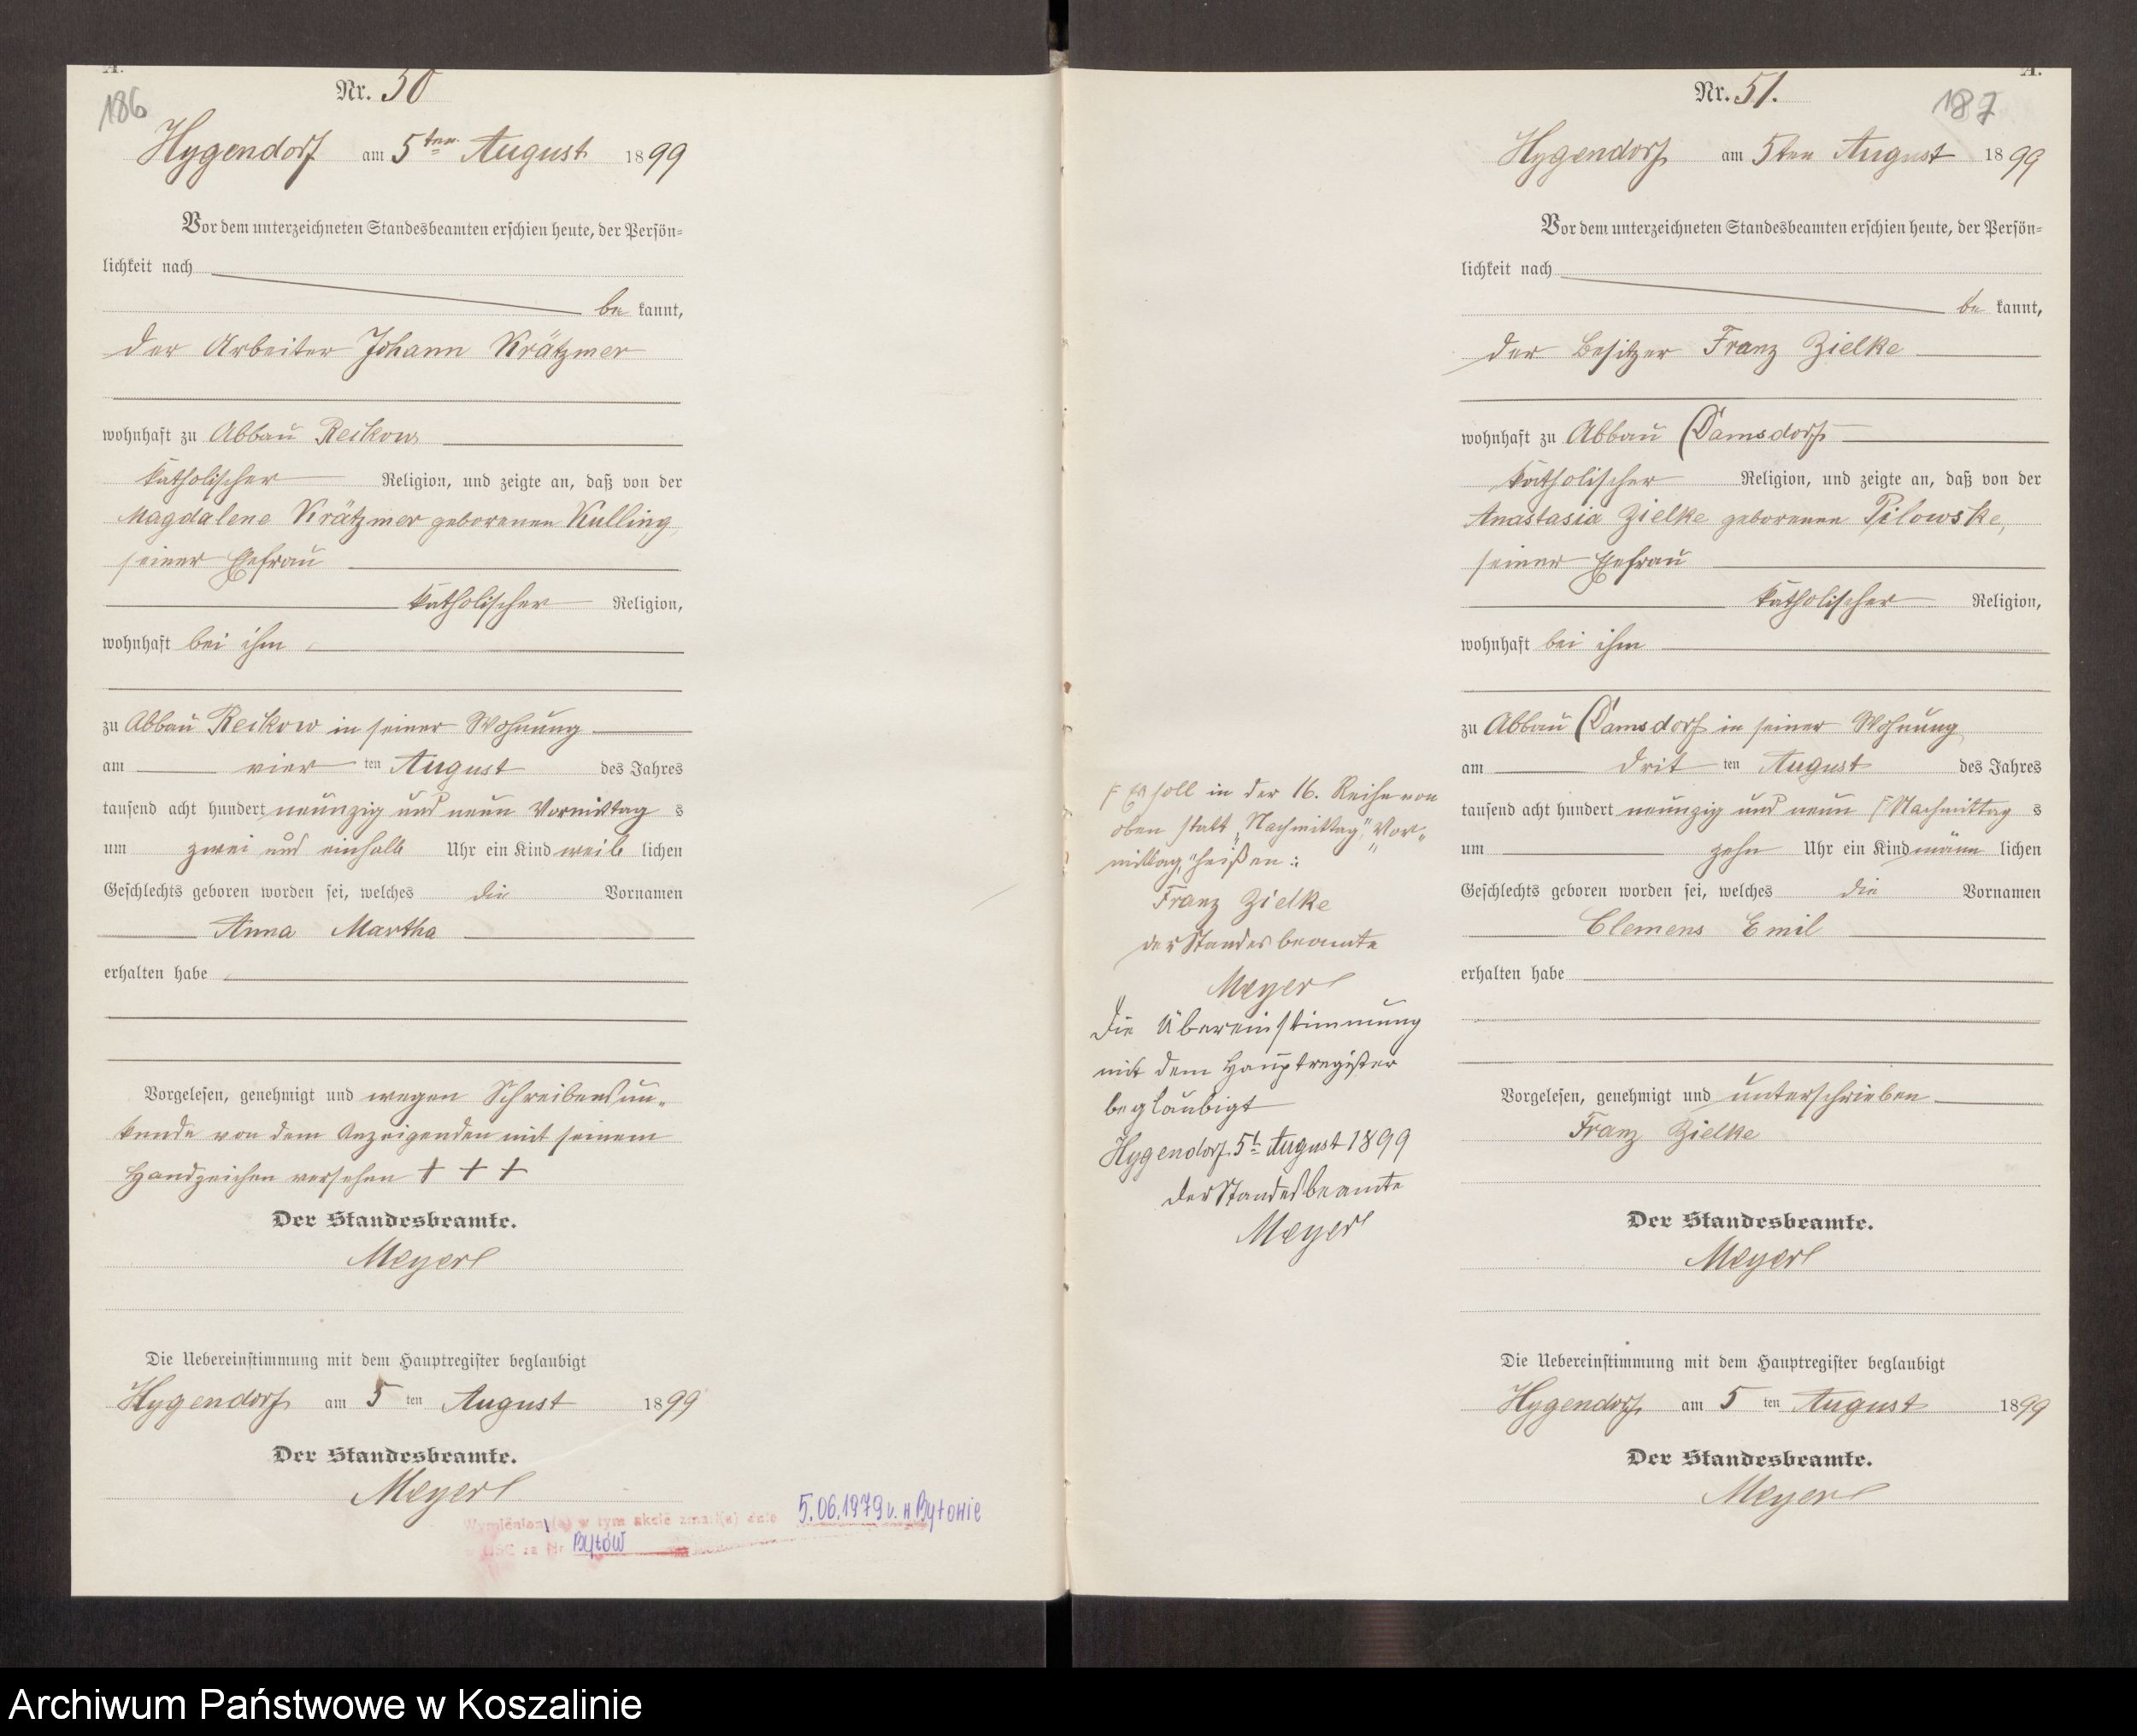 A.
186
Nr. 50
Hygendorf am 5ten August 1899
Vor dem unterzeichneten Standesbeamten erschien heute, der Persön-
lichkeit nach
be kannt,
der Arbeiter Johann Krätzmer
wohnhaft zu Abbau Reckow
katholischer Religion, und zeigte an, daß von der
Magdalene Krätzmer geborenen Kulling,
seiner Ehefrau
katholischer Religion,
wohnhaft bei ihm
zu Abbau Reckow in seiner Wohnung
am vier ten August des Jahres
tausend acht hundert neunzig und neun Vormittag s
um zwei und einhalb Uhr ein Kind weib lichen
Geschlechts geboren worden sei, welches die Vornamen
Anna Martha
erhalten habe
Vorgelesen, genehmigt und wegen Schreibensun-
kunde von dem Anzeigenden mit seinem
Handzeichen versehen + + +
Der Standesbeamte.
Meyer
Die Uebereinstimmung mit dem Hauptregister beglaubigt
Hygendorf am 5 ten August 1899
Der Standesbeamte.
Meyer
Wymieniony(a) w tym akcie zmarł(a) dnia 5.06.1979 r. w Bytowie
USC za Nr Bytów
A.
187
Nr. 51.
Hygendorf am 5ten August 1899
Vor dem unterzeichneten Standesbeamten erschien heute, der Persön-
lichkeit nach
be kannt,
der Besitzer Franz Zielke
wohnhaft zu Abbau Damsdorf
katholischer Religion, und zeigte an, daß von der
Anastasia Zielke geborenen Pilowske,
seiner Ehefrau
katholischer Religion,
wohnhaft bei ihm
zu Abbau Damsdorf in seiner Wohnung
am drit ten August des Jahres
tausend acht hundert neunzig und neun Nachmittag s
um zehn Uhr ein Kind männ lichen
Geschlechts geboren worden sei, welches die Vornamen
Clemens Emil
erhalten habe
Vorgelesen, genehmigt und unterschrieben
Franz Zielke
Der Standesbeamte.
Meyer
Die Uebereinstimmung mit dem Hauptregister beglaubigt
Hygendorf am 5 ten August 1899
Der Standesbeamte.
Meyer
Es soll in der 16. Reihe von
oben statt „Nachmittag" „Vor-
mittag" heißen:
Franz Zielke
der Standesbeamte
Meyer
Die Übereinstimmung
mit dem Hauptregister
beglaubigt
Hygendorf 5t August 1899
Der Standesbeamte
Meyer
Archiwum Państwowe w Koszalinie